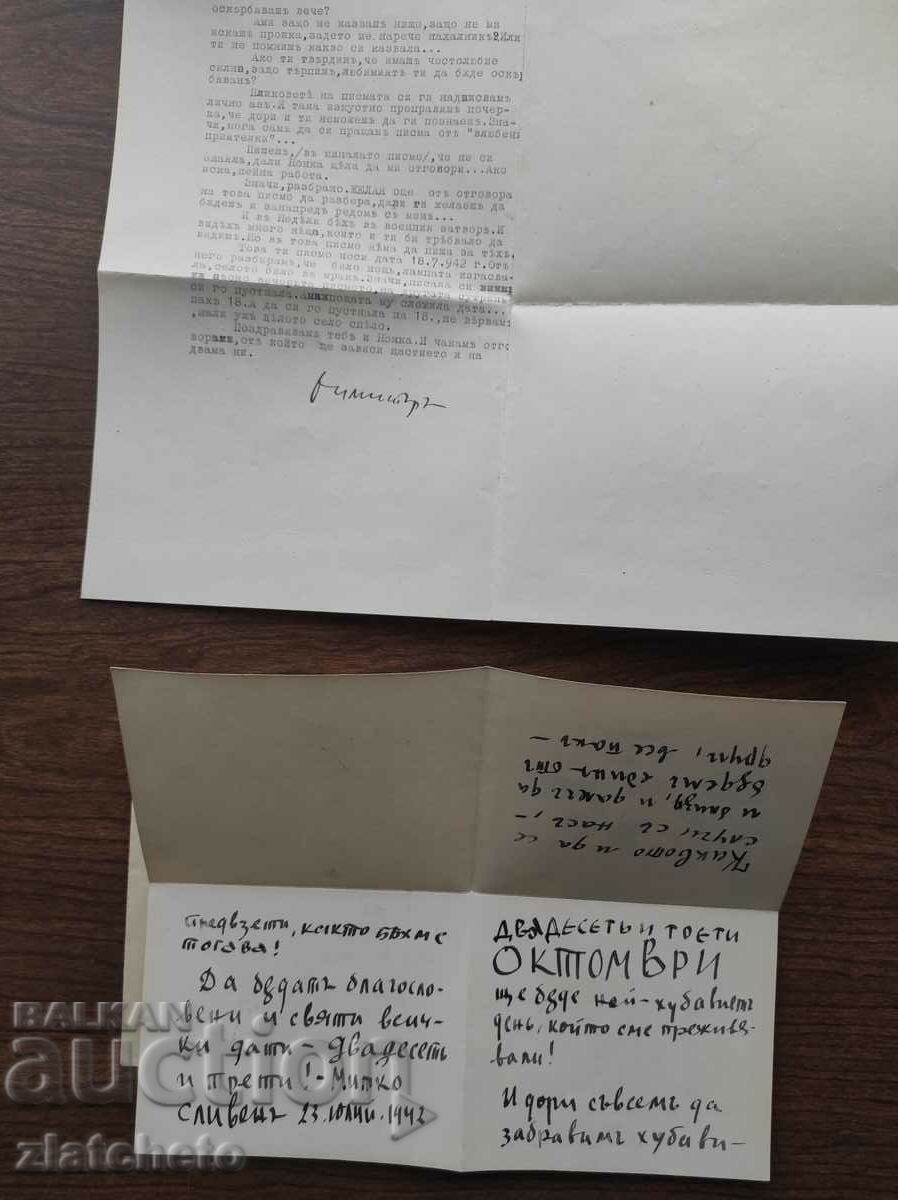 оскърбявашъ вече?
Ами защо не казвашъ нищо, защо не ми
искашъ прошка, задето ме нарече нахалникъ? Или
ти не помнишъ какво си казвала...
Ако ти твърдишъ, че имашъ честолюбие
силно, защо търпишъ, любимиятъ ти да бѫде оскѫр
бяванъ?
Пликоветѣ на писмата си ги надписвамъ
лично азъ. И така изкустно преправямъ почер-
ка, че дори и ти неможешъ да ги познаешъ. Зна-
чи, мога самъ да си пращамъ писма отъ "влюбени
приятелки"...
Пишешъ, /въ миналото писмо/, че не си
знаяла, дали Йонка щѣла да ми отговори... Ако
иска, нейна работа.
Значи, разбрано. ЖЕЛАЯ още отъ отговора
на това писмо да разбера, дали ти желаешъ да
бѫдешъ и занапредъ редомъ съ мене...
И въ Недѣля бѣхъ въ военния затворъ. И
видѣхъ много нѣща, които и ти би трѣбвало да
видишъ. Но въ това писмо нѣма да пиша за тѣхъ.
Това ти писмо носи дата 18.7.942 г. Отъ
него разбирамъ, че било нощь, лампата изгасна-
ла, селото било въ мракъ. Значи, писала си
си го пуснала. му сложила дата...
пакъ 18. А да си го пуснала на 18., не вѣрвамъ
, нали ужъ цѣлото село спѣло.
Поздравявамъ тебъ и Йонка. И чакамъ отго-
вора, отъ който ще зависи щастието и на
двама ни.
Димитъръ
Каквото и да се
случи съ насъ, –
и близу, и далечъ да
бѫдемъ единъ отъ
другъ, все пакъ –
ДВАДЕСЕТЬ И ТРЕТИ
ОКТОМВРИ
ще бѫде най-хубавиятъ
день, който сме преживя-
вали!
И дори съвсемъ да
забравимъ хубави –
предвзети, както бѣхме
тогава!
Да бѫдатъ благосло-
вени и святи всич-
ки дати – двадесеть
и трети! – Митко
Сливенъ 23. юлий. 1942
BALKAN
auction
zlatcheto